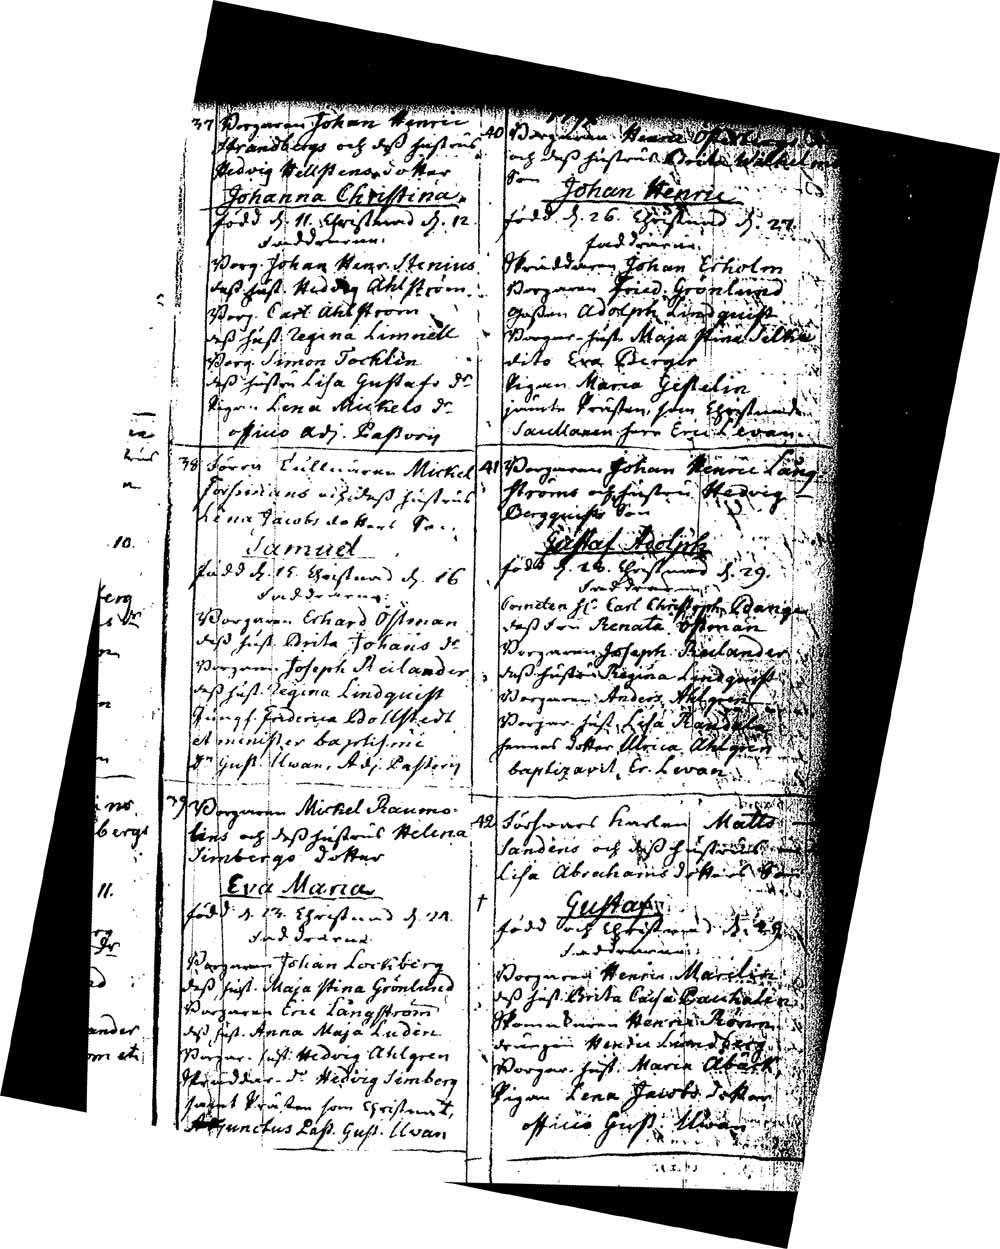 37 Borgaren Johan Henric
Strandbergs och dess hustrus
Hedvig Hellstens dotter
Johanna Christina
född d. 11. Christnad d. 12.
Faddrarne:
Borg. Johan Henr. Stenius
dess hust. Hedvig Ahlström
Borg. Carl Ahlstrom
dess hust Regina Limnell
Borg Simon Tocklin
dess hustru Lisa Gustafs dr
Pigan Lena Mickels dr
officio Adj. Past
38 Mickel
Forsmans och dess hustrus
Lena Jacobs dotters Son
Samuel
född d. 15. Christnad d. 16
Faddrarne:
Borgaren Erhard Östman
dess hust. Brita Johans dr
Borgaren Joseph Reilander
dess hust. Regina Lindquist
Jungf. Friderica Dollstedt
et minister baptismi
Gust. Uwan, Adj. Pastoris
39 Borgaren Mickel Raumo-
lins och dess hustrus Helena
Simbergs dotter
Eva Maria
född d. 23. Christnad d. 24.
Faddrarne
Borgaren Johan Lockberg
dess hust. Maja Stina Grönlund
Borgaren Eric Långström
dess hust. Anna Maja Luden
Borgar. hust. Hedvig Ahlgren
Skräddar dr Hedvig Simberg
samt Prästen som Christnat,
Adjunctus Past. Gust. Uwan
40 Borgaren Henric
och dess hustrus Brita
Son
Johan Henric
född d. 26. Christnad d. 27.
Faddrarne:
Skräddaren Johan Erholm
Borgaren Fried. Grönlund
Adolph Lindquist
Borgar. hust. Maja Stina Silka
dito Eva Berger
Pigan Maria Gestelin
jämte Prästen, som Christnade
Herr Eric Levan
41 Borgaren Johan Henric Lång-
ströms och hustru Hedvig
Bergquists Son
Gustaf Adolph
född d. 28. Christnad d. 29.
Faddrarne
Carl Christoph
dess fru Renata Östman
Borgaren Joseph Reilander
dess hustru Regina Lindquist
Borgaren Anders Ahlgren
Borgar. hust. Lisa
hennes dotter Ulrica Ahlgren
baptizavit Er. Levan
42 Matts
Sandens och dess hustrus
Lisa Abrahams dotters Son
† Gustaf
född och Christnad d. 29.
Faddrarne:
Borgaren Henric Marelin
dess hust. Brita Caisa
Henric
drängen Henric Lundberg
Borgar. hust. Maria Åbäck
Pigan Lena Jacobs dotter
officio Gust. Uwan
10.
11.
bergs